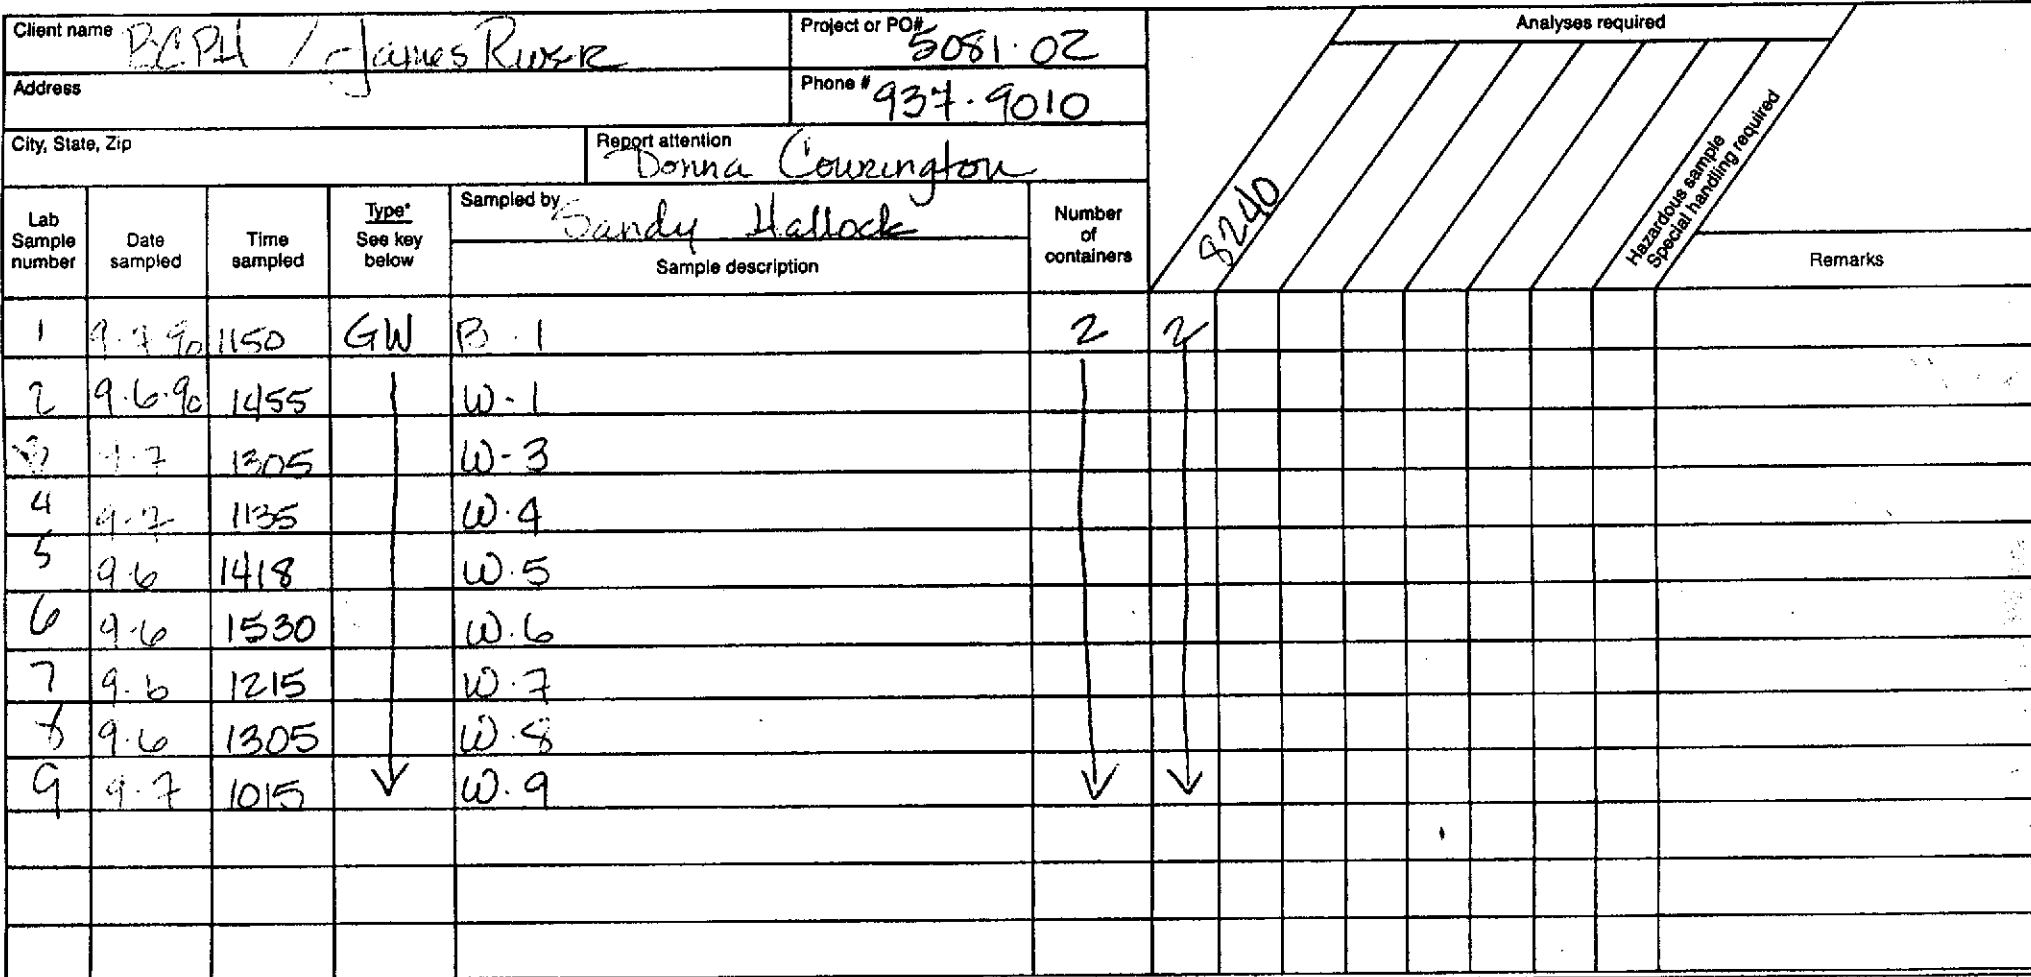 Client name BCPH / James River Project or PO# 5081.02
Address Phone # 937.9010
City, State, Zip Report attention Donna Courington
Analyses required
Lab Sample number Date sampled Time sampled Type* See key below Sampled by Sandy Hallock Sample description Number of containers 8240 Hazardous sample Special handling required Remarks
1 9.7.90 1150 GW B.1 2 2
2 9.6.90 1455 W-1
3 9.7 1305 W-3
4 9.7 1135 W.4
5 9.6 1418 W.5
6 9.6 1530 W.6
7 9.6 1215 W.7
8 9.6 1305 W.8
9 9.7 1015 W.9